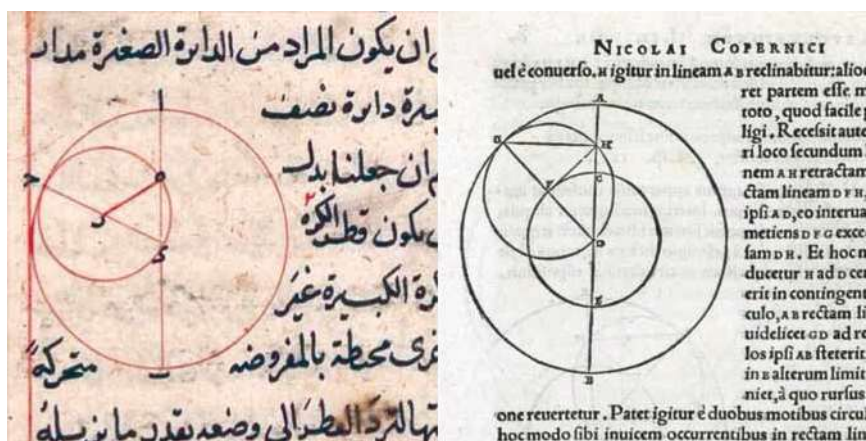 ان يكون المراد من الدائرة الصغيرة مدار
دائرة نصف
ان جعلنا بدل
يكون قطر الكرة
الكبيرة غير
محيطة بالمفروضه متحركة
لترد القطر الى وضعه بقدر ما يزيله
NICOLAI COPERNICI
uel è conuerso. H igitur in lineam AB reclinabitur: alioq
ret partem esse m
toto, quod facile p
ligi. Recessit aute
ri loco secundum l
nem AH retractam
ctam lineam DFH,
ipsi AD, eo interua
metiens DFG exce
sam DH. Et hoc m
ducetur H ad D cen
erit in contingent
culo, AB rectam li
uidelicet GD ad re
los ipsi AB steterit
in B alterum limit
niet, à quo rursus
one reuertetur. Patet igitur è duobus motibus circul
hoc modo sibi inuicem occurrentibus in rectam lin
A
G
H
C
F
D
E
B